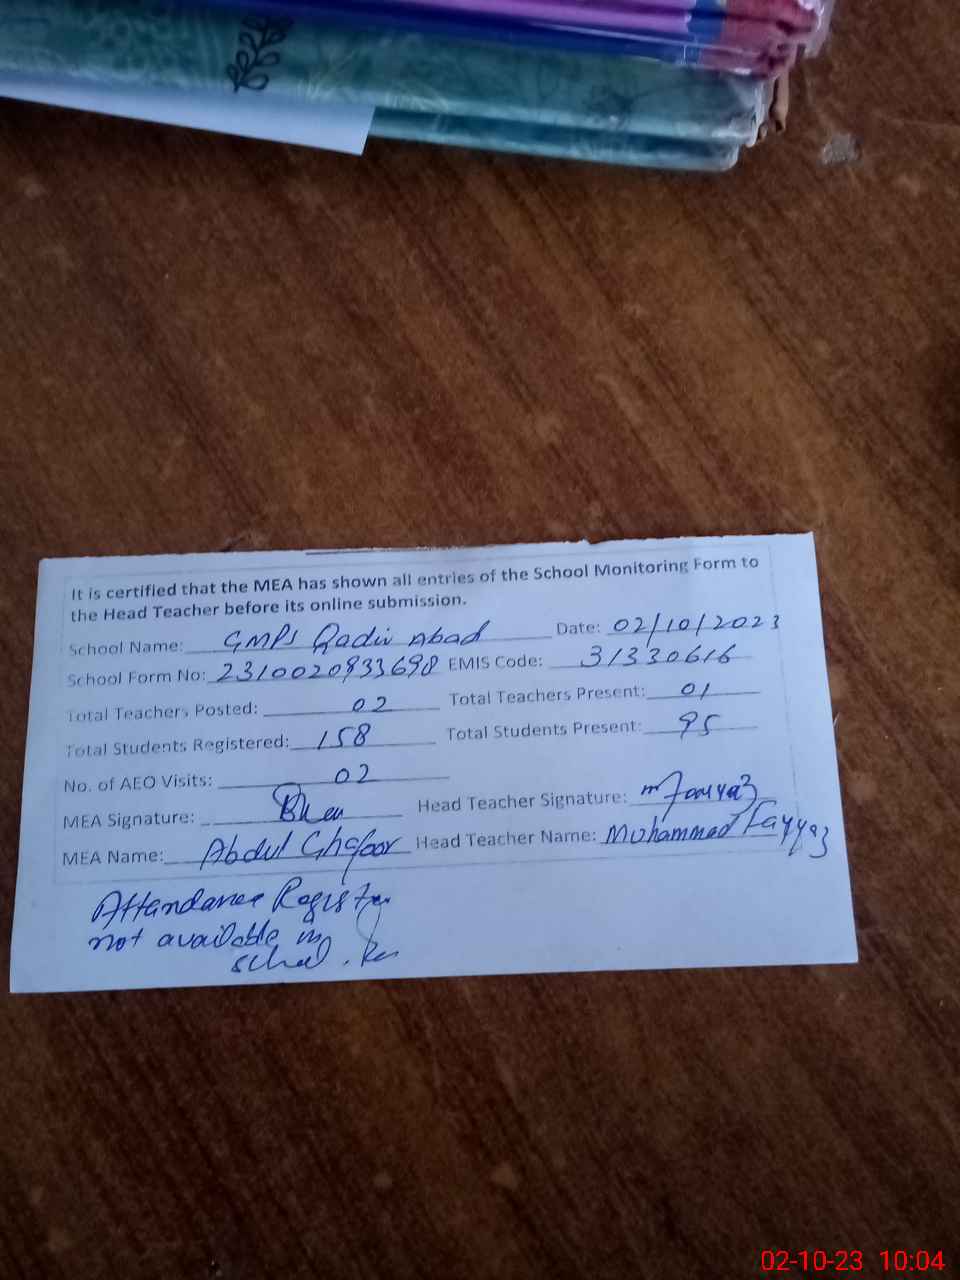 It is certified that the MEA has shown all entries of the School Monitoring Form to
the Head Teacher before its online submission.
School Name: GMPS Qadir Abad Date: 02/10/2023
School Form No: 2310020933698 EMIS Code: 31330616
Total Teachers Posted: 02 Total Teachers Present: 01
Total Students Registered: 158 Total Students Present: 95
No. of AEO Visits: 02
MEA Signature: Head Teacher Signature: m Fayyaz
MEA Name: Abdul Ghafoor Head Teacher Name: Muhammad Fayyaz
Attendance Register
not available in
school.
02-10-23 10:04